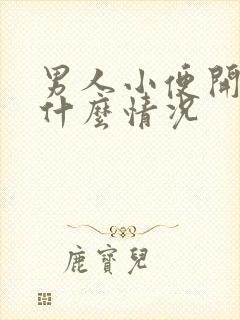 男人小便開
什麼情況
鹿寶兒